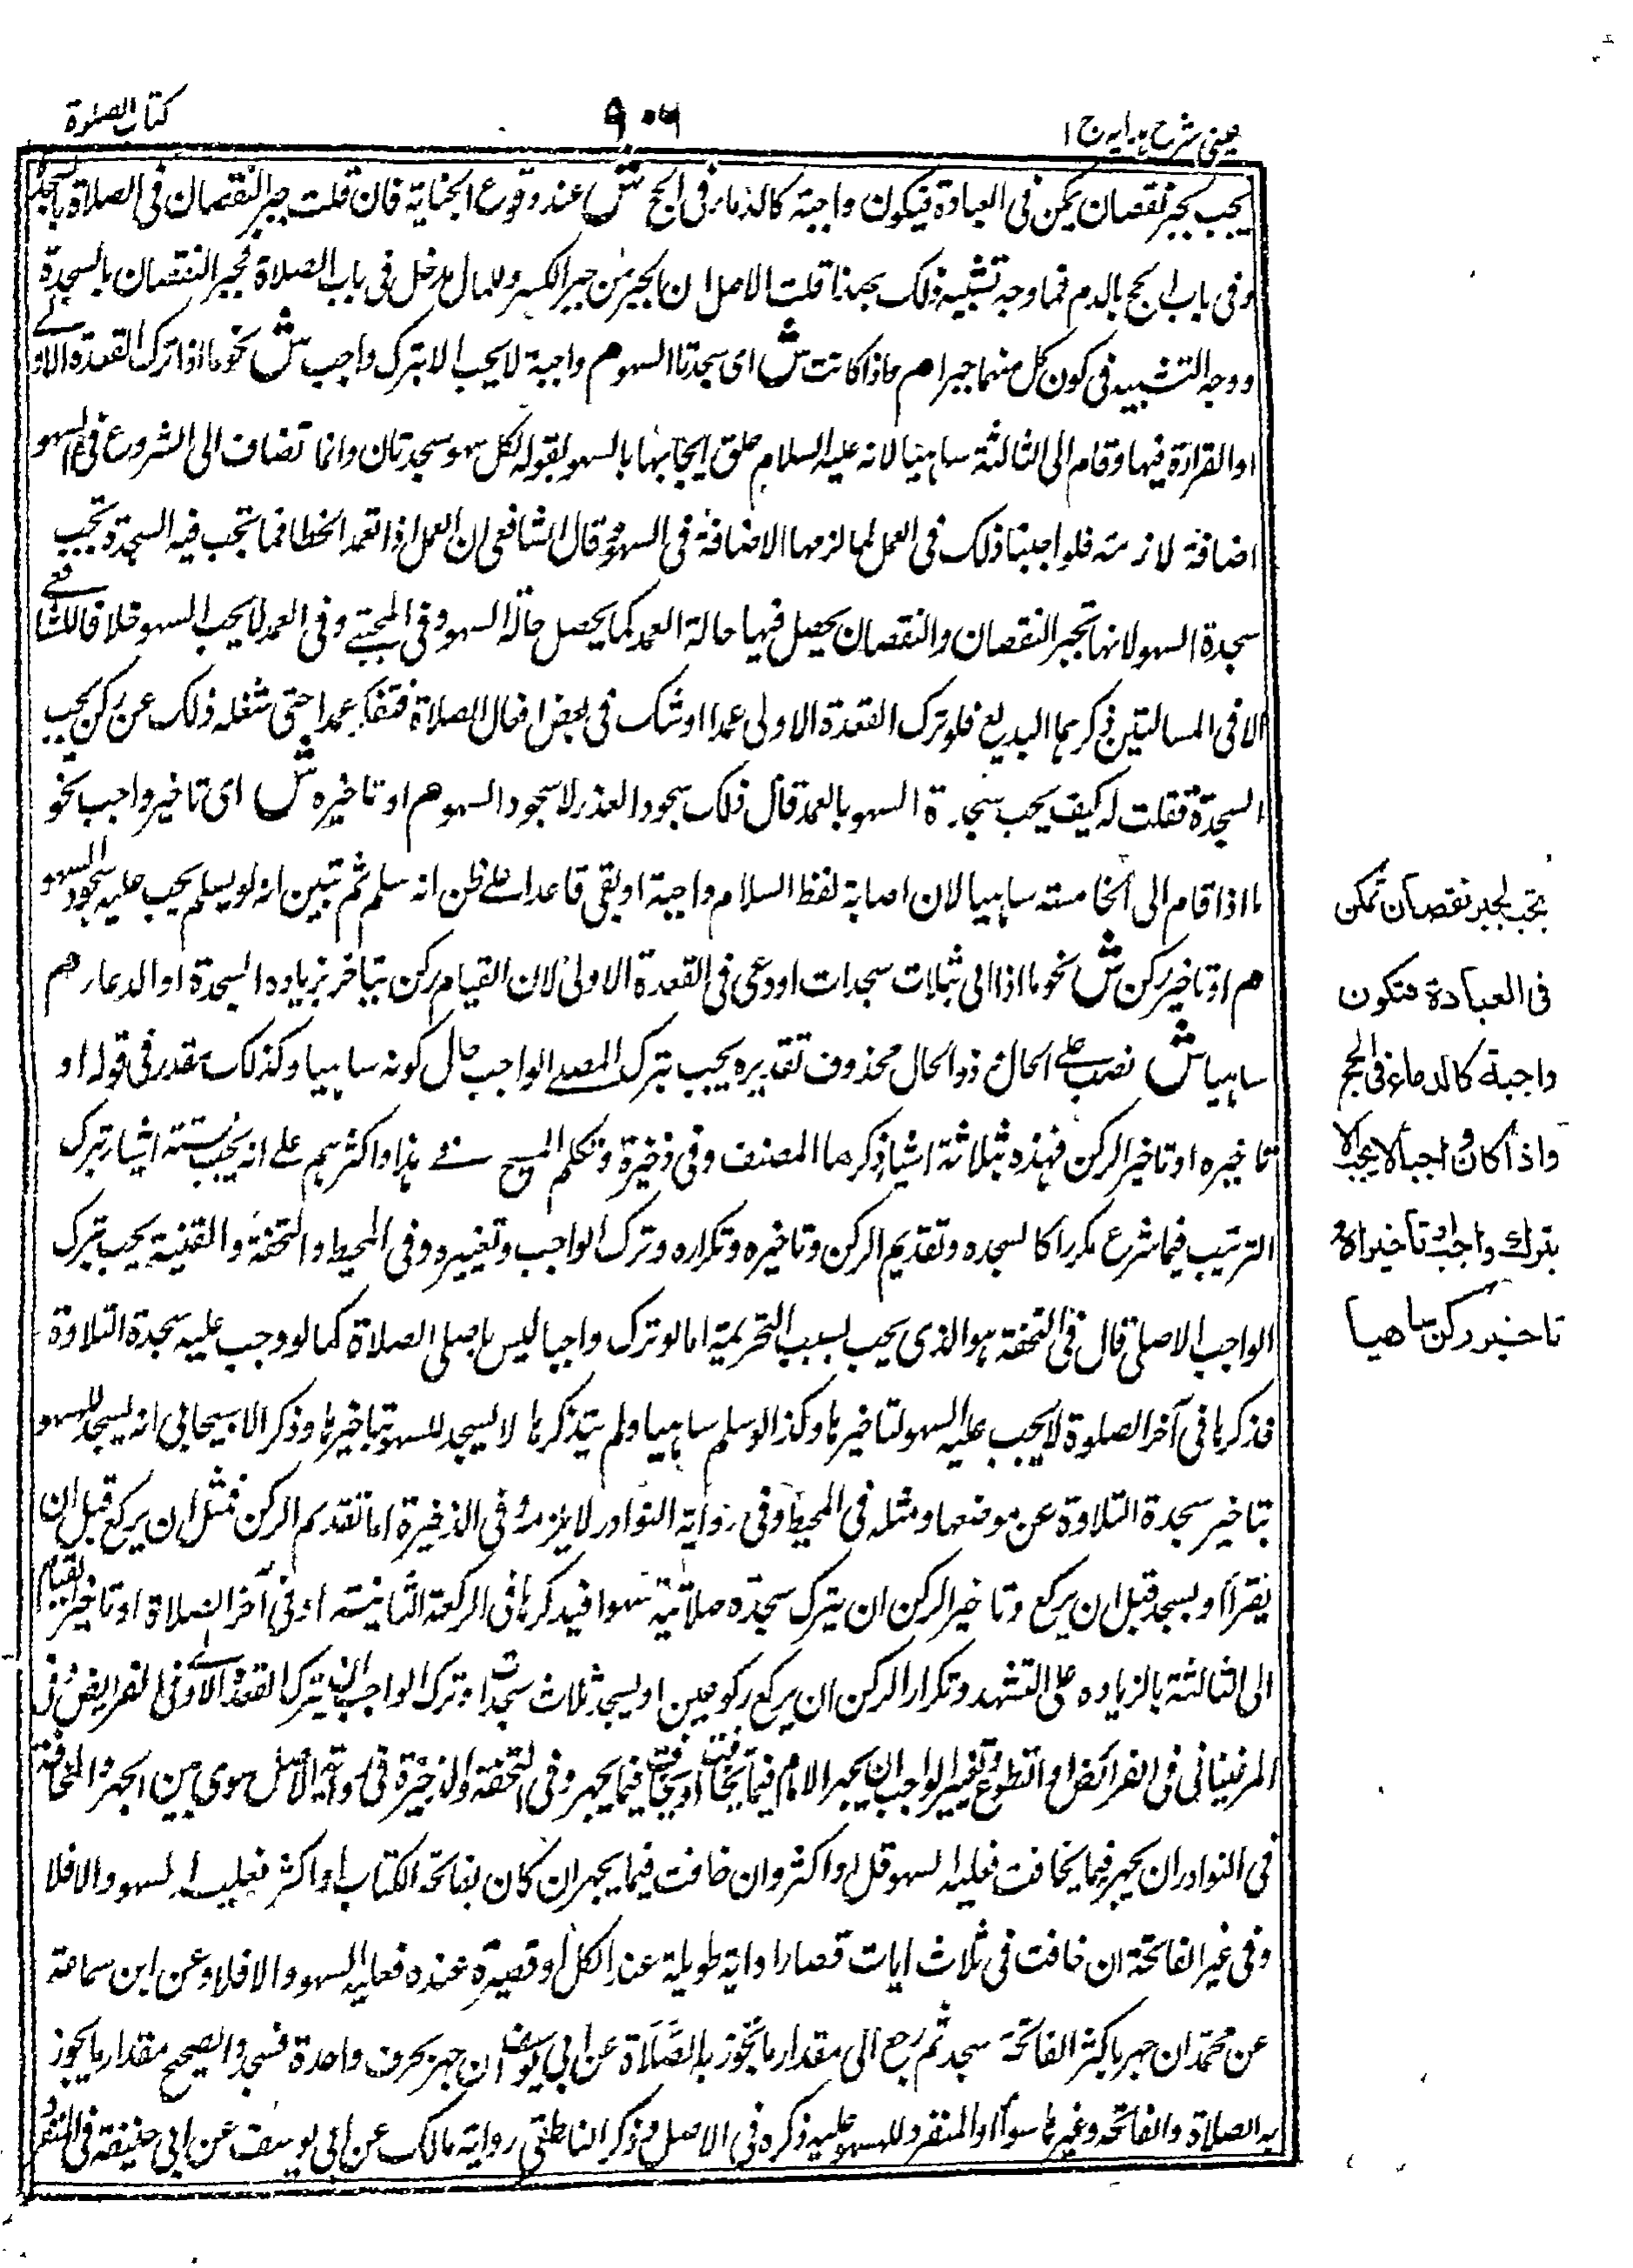 عینی شرح ہدایہ ج ا
۹۰۶
کتاب الصلوة
یجب بجبر نقصان یمکن فی العبادة فیکون واجبة کالدماء فی الحج ش عند وقوع الجنایة فان قلت جبر النقصان فی الصلاة بالسجدة
وفی باب الحج بالدم فما وجہ تشبیہ ذلک بہذا قلت الاصل ان الجبر من جبر الکسر وللمال مدخل فی باب الصلاة فیجبر النقصان بالسجدة
ووجہ التشبیہ فی کون کل منہما جبرا ھم واذا کانت ش ای سجدتا السہو ھم واجبة لا یجب الا بترک واجب ش نحو ما اذا ترک القعدة الاولے
او القراءة فیہا وقام الی الثالثة ساہیا لانہ علیہ السلام علق ایجابہا بالسہو بقولہ لکل سہو سجدتان وانما تضاف الی الشروع فی السہو
اضافة لازمتہ فلو اجبنا ذلک فی العمل لما لزمہا الاضافة فی السہو وقال الشافعی ان العمل اذا تعمد الخطا فما تجب فیہ السجدة تجب
سجدة السہو لانہا تجبر النقصان والنقصان یحصل فیہا حالة العمد کما یحصل حالة السہو وفی المجتبے وفی العمد لا یجب السہو خلافا للشافعے
الا فی المسالتین ذکرہما البدیع فلو ترک القعدة الاولی عمدا او شک فی بعض افعال الصلاة فتفکر عمدا حتی شغلہ ذلک عن رکن یجب
السجدة فقلت لہ کیف یجب سجدة السہو بالعمد قال ذلک سجود العذر لا سجود السہو ھم او تاخیرہ ش ای تاخیر واجب نحو
ما اذا قام الی الخامستہ ساہیا لان اصابة لفظ السلام واجبة او بقی قاعدا علے ظن انہ سلم ثم تبین انہ لو یسلم یجب علیہ سجود السہو
ھم او تاخیر رکن ش نحو ما اذا اتی بثلاث سجدات او دعی فی القعدة الاولی لان القیام رکن یتاخر بزیادہ السجدة او الدعاء ھم
ساہیا ش نصب علے الحال ذو الحال محذوف تقدیرہ یجب بترک المصلے الواجب حال کونہ ساہیا وکذلک یقدر فی قولہ او
تاخیرہ او تاخیر الرکن فہذہ ثلاثة اشیاء ذکرھا المصنف وفی ذخیرة وتکلم المسیح فے ہذا واکثرہم علے انہ یجب بستتہ اشیاء بترک
الترتیب فیما شرع مکررا کالسجدہ وتقدیم الرکن وتاخیرہ وتکرارہ وترک الواجب وتغییرہ وفی المحیط والتحفة والقنیة یجب بترک
الواجب الاصلی قال فی التحفة ہو الذی یجب بسبب التحریمة اما لو ترک واجبا لیس باصلی الصلاة کما لو وجب علیہ سجدة التلاوة
فذکرہا فی آخر الصلوة لا یجب علیہ السہو لتاخیرہا وکذا لو سلم ساہیا ولم یتذکرہا لا یسجد للسہو بتاخیرہا وذکر الاسبیجابی انہ یسجد للسہو
بتاخیر سجدة التلاوة عن موضعہا ومثلہ فی المحیط وفی روایة النوادر لا یلزمہ وفی الذخیرة اما تقدیم الرکن فمثل ان یرکع قبل ان
یقرأ او یسجد قبل ان یرکع وتاخیر الرکن ان یترک سجدة صلاتیة سہوا فیذکرہا فی الرکعة الثانیتہ او فی آخر الصلاة او تاخیر القیام
الی الثالثة بالزیادہ علی التشہد وتکرار الرکن ان یرکع رکوعین او یسجد ثلاث سجدات وترک الواجب ان یترک القعدة الاولی فی الفرایض وفی
المرغینانی فی الفرائض او التطوع وتغییر الواجب ان یجہر الامام فیما یخافت او یخافت فیما یجہر وفی التحفة والذخیرة فی روایة الاصل سوی بین الجہر والمخافتة
فی النوادر ان یجہر فیما یخافت فعلیہ السہو قل او اکثر وان خافت فیما یجہر ان کان بفاتحة الکتاب او اکثر فعلیہ السہو والا فلا
وفی غیر الفاتحة ان خافت فی ثلاث ایات قصار او ایة طویلة عند الکل او قصیرة عندہ فعلیہ السہو والا فلا وعن ابن سماعة
عن محمد ان جہر باکثر الفاتحة سجد ثم رجع الی مقدار ما یجوز بہ الصلاة عن ابی یوسف ان جہر بحرف واحدة فسجد والصحیح مقدار ما یجوز
بہ الصلاة والفاتحة وغیرہا سواء والمنفرد للسہو علیہ ذکرہ فی الاصل وذکر الناطفی روایة مالک عن ابی یوسف عن ابی حنیفة فی المنفرد
یجب لجبر نقصان تمکن
فی العبادة فتکون
واجبة کالدماء فی الحج
واذا کان واجبا لا یجب الا
بترک واجب او تاخیرہ او
تاخیر رکن ساھیا